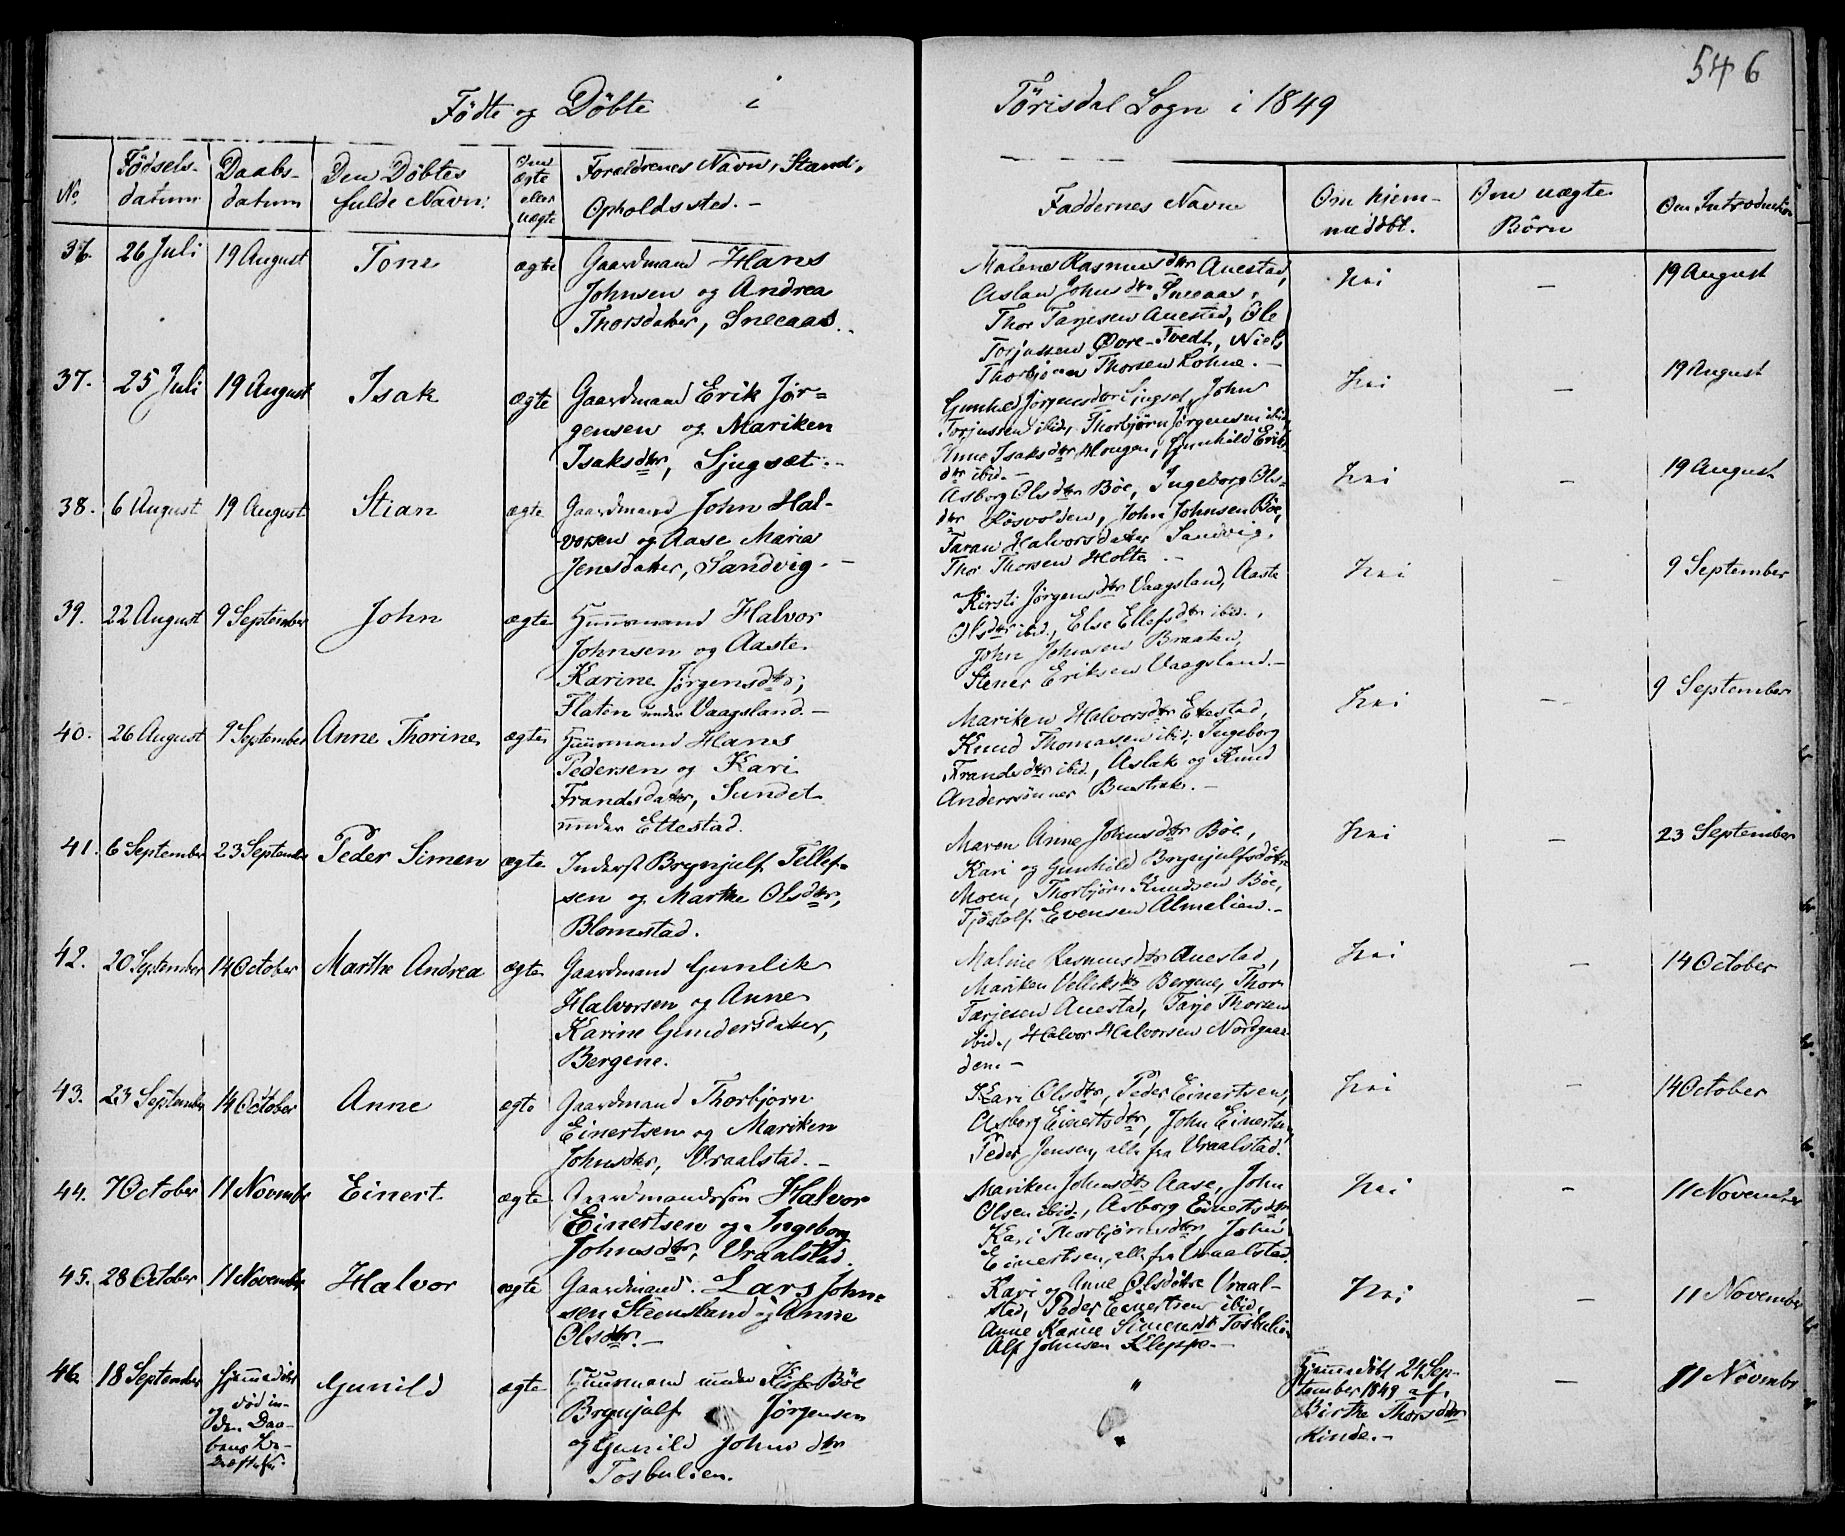 546
Fødte og Døbte i Tørisdal Sogn i 1849
No
Fødsels-
datum
Daabs-
datum
Den Døbtes
fulde Navn.
Om
ægte
eller
uægte
Forældrenes Navn, Stand,
Opholdssted. -
Faddernes Navne
Om hjem-
medøbt.
Om uægte
Børn
Om Introduktion
36. 26 Juli 19 August Tone ægte
Gaardmand Hans
Johnsen og Andrea
Thorsdatter, Sneeaas.
Malene Rasmusdtr Auestad,
Aslau Johnsdtr Sneeaas,
Thor Tarjesen Auestad, Ole
Torjussen Øvre-Tvedt, Niels
Thorbjørn Thorsen Lohne. -
Nei
-
19 August
37. 25 Juli 19 August Isak ægte
Gaardmand Erik Jør-
gensen og Mariken
Isaksdtr, Sjugsæt. -
Gunhild Jørgensdtr John
Torjussen ibid, Thorbjørn Jørgensen ibid,
Anne Isaksdtr Gunhild Eriks-
dtr ibid. -
Nei
-
19 August
38. 6 August 19 August Stian ægte
Gaardmand John Hal-
vorsen og Aase Maria
Jensdatter, Sandvig. -
Asborg Olsdtr Bøe, Ingeborg Ols-
dtr Løsvolden, John Johnsen Bøe,
Taran Halvorsdatter Sandvig,
Thor Thorsen Holte. -
Nei
-
19 August
39. 22 August 9 September John ægte
Huusmand Halvor
Johnsen og Aaste
Karine Jørgensdtr,
Flaten under Vaagsland. -
Kirsti Jørgensdtr Vaagsland, Aaste
Olsdtr ibid., Else Ellefsdtr ibid.,
John Johnsen Braaten,
Stener Eriksen Vaagsland. -
Nei
-
9 September
40. 26 August 9 September Anne Thorine ægte
Huusmand Hans
Pedersen og Kari
Frandsdatter, Sundet
under Ettestad.
Mariken Halvorsdtr Ettestad,
Knud Thomasen ibid, Ingeborg
Frandsdtr ibid., Aslak og Knud
Anderssønner Bustrak. -
Nei
-
9 September
41. 6 September 23 September Peder Simen ægte
Inderst Brynjulf Tellef-
sen og Marthe Olsdtr,
Blomstad.
Maren Anne Johnsdtr Bøe,
Kari og Gunhild Brynjulfsdøtre
Moen, Thorbjørn Knudsen Bøe,
Tjøstolf Evensen Almelien. -
Nei
-
23 September
42. 20 September 14 October Marthe Andrea ægte
Gaardmand Gunlik
Halvorsen og Anne
Karine Gundersdatter,
Bergene.
Maline Rasmusdtr Auestad,
Mariken Velliksdtr Bergene, Thor
Tarjesen Auestad, Tarje Thorsen
ibid., Halvor Halvorsen Nordgaar-
den. -
Nei
-
14 October
43. 23 September 14 October Anne ægte
Gaardmand Thorbjørn
Einertsen og Mariken
Johnsdtr, Vraalstad. -
Kari Olsdtr, Peder Einertsen,
Asborg Einertsdtr, John Einertsen,
Peder Jensen, alle fra Vraalstad.
Nei
-
14 October
44. 7 October 11 Novembr Einert ægte
Gaardmandssøn Halvor
Einertsen og Ingeborg
Johnsdtr, Vraalstad.
Mariken Johnsdtr Aase, John
Olsen ibid., Asborg Einertsdtr
Kari Thorbjørnsdtr, John
Einertsen, alle fra Vraalstad.
Nei
-
11 November
45. 28 October 11 November Halvor ægte
Gaardmand Lars John-
sen Steensland og Anne
Olsdtr. -
Kari og Anne Olsdøtre Vraal-
stad, Peder Einertsen ibid,
Anne Karine Simensdtr Tosbulien
Alf Johnsen Kleppe. -
Nei
-
11 November
46. 18 September Hjemmedøbt
og død in-
den Daa-
bens
Gunild ægte
Huusmand under Bøe
Brynjulf Jørgensen
og Gunild Johnsdtr
Tosbulien.
"
Hjemmedøbt 24 Sep-
tember 1849 af
Birthe Thorsdtr
Rinde. -
-
11 Novembr